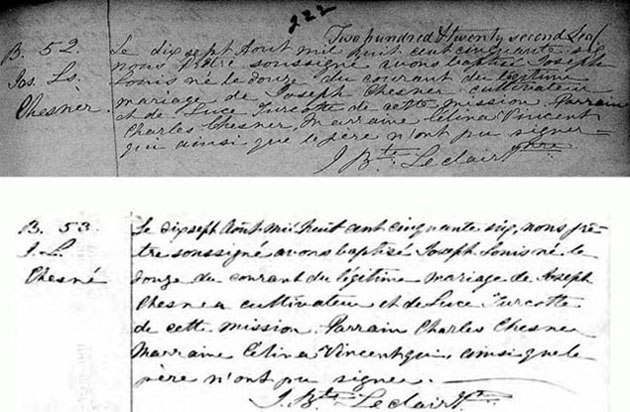 222
Two hundred & twenty second Leaf
B. 52.
Jos. Ls.
Chesner.
Le dix sept Aout mil huit cent cinquante six
nous Prêtre soussigné avons baptisé Joseph
Louis né le douze du courant du légitime
mariage de Joseph Chesner cultivateur
et de Luce Turcotte de cette mission. Parrain
Charles Chesner, Marraine Celina Vincent
qui ainsi que le père n'ont pu signer -
J Bte Leclair Ptre
B. 53.
J. L.
Chesné
Le dix sept Août mil huit cent cinquante six, nous prê-
tre soussigné avons baptisé Joseph Louis né le
douze du courant du légitime mariage de Joseph
Chesner cultivateur et de Luce Turcotte
de cette mission. Parrain Charles Chesner
Marraine Celina Vincent qui, ainsi que le
père n'ont pu signer.
J. Bte Leclair Ptr